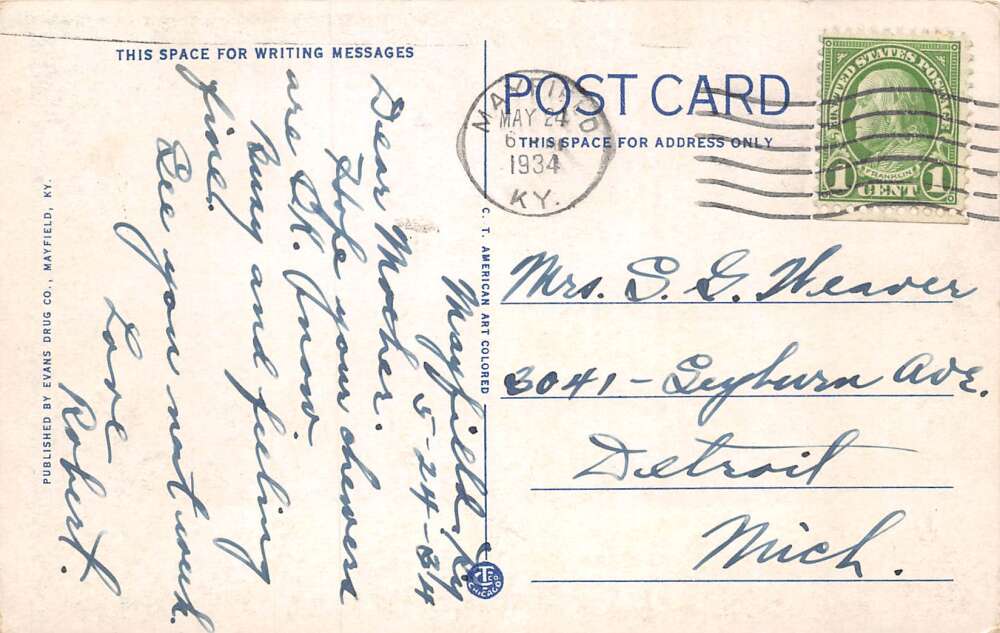 THIS SPACE FOR WRITING MESSAGES
Mayfield, Ky
5-24-34
Dear Mother.
Hope your chewers
are OK. now.
Busy and feeling
fine.
See you next week.
Love
Robert.
PUBLISHED BY EVANS DRUG CO., MAYFIELD, KY.
C. T. AMERICAN ART COLORED
CHICAGO
POST CARD
THIS SPACE FOR ADDRESS ONLY
MAYFIELD
MAY 24
6
1934
KY.
UNITED STATES POSTAGE
FRANKLIN
1 CENT 1
Mrs. S. G. Weaver
3041 - Leyburn Ave.
Detroit
Mich.